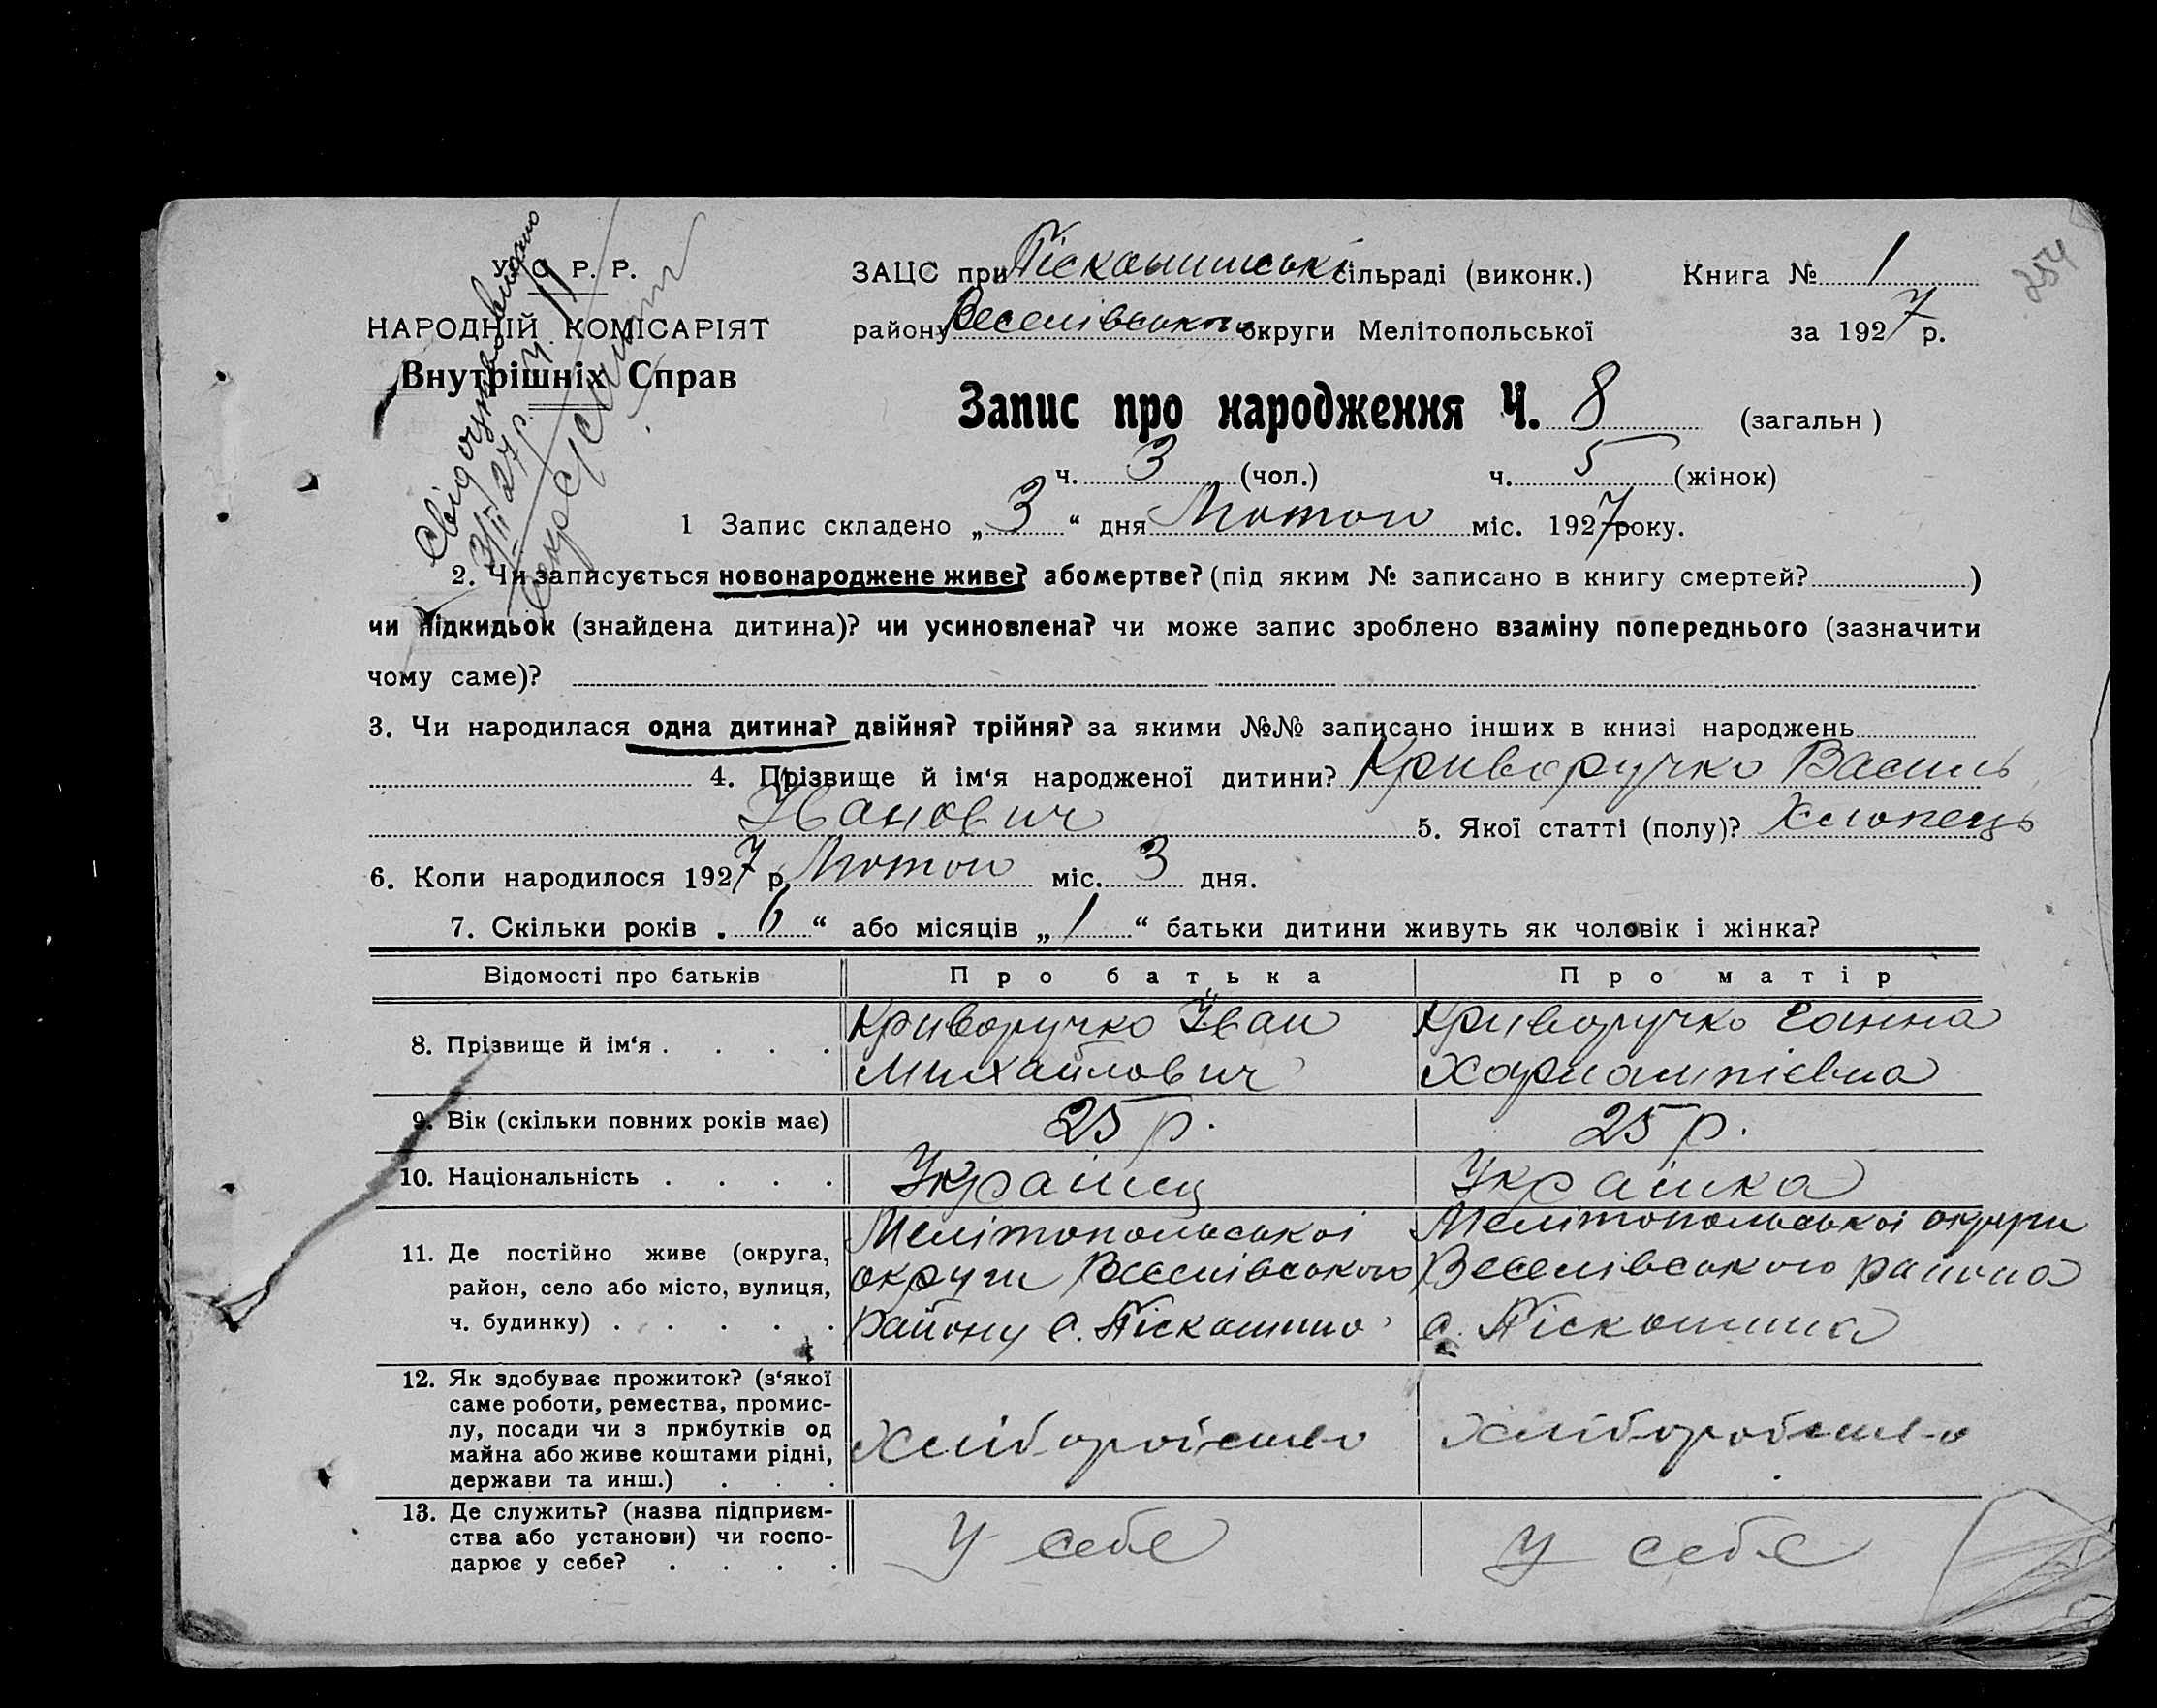 254
У. С. Р. Р.
НАРОДНІЙ КОМІСАРІЯТ
Внутрішніх Справ
Свідоцтво видано
3/II 27 р.
ЗАЦС при Піскошинські сільраді (виконк.) Книга № 1
району Веселівського округи Мелітопольської за 1927 р.
Запис про народження Ч. 8 (загальн)
ч. 3 (чол.) ч. 5 (жінок)
1 Запис складено „3“ дня Лютого міс. 1927 року.
2. Чи записується новонароджене живе? або мертве? (під яким № записано в книгу смертей? )
чи підкидьок (знайдена дитина)? чи усиновлена? чи може запис зроблено взаміну попереднього (зазначити
чому саме)?
3. Чи народилася одна дитина? двійня? трійня? за якими №№ записано інших в книзі народжень
4. Прізвище й ім‘я народженої дитини? Криворучко Василь
Іванович 5. Якої статті (полу)? Хлопець
6. Коли народилося 1927 р. Лютого міс. 3 дня.
7. Скільки років „6“ або місяців „1“ батьки дитини живуть як чоловік і жінка?
Відомості про батьків Про батька Про матір
8. Прізвище й ім‘я . . . . Криворучко Іван Криворучко Ганна
Михайлович Харлампієвна
9. Вік (скільки повних років має) 25 р. 25 р.
10. Національність . . . . Українец Українка
11. Де постійно живе (округа, Мелітопольської Мелітопольської округи
район, село або місто, вулиця, округи Веселівського Веселівського района
ч. будинку) . . . . . Району с. Піскошино с. Піскошина
12. Як здобуває прожиток? (з‘якої
саме роботи, ремества, промис-
лу, посади чи з прибутків од
майна або живе коштами рідні, Хліборобство Хліборобство
держави та инш.) . . .
13. Де служить? (назва підприєм-
ства або установи) чи госпо- У себе У себе
дарює у себе? . . . .